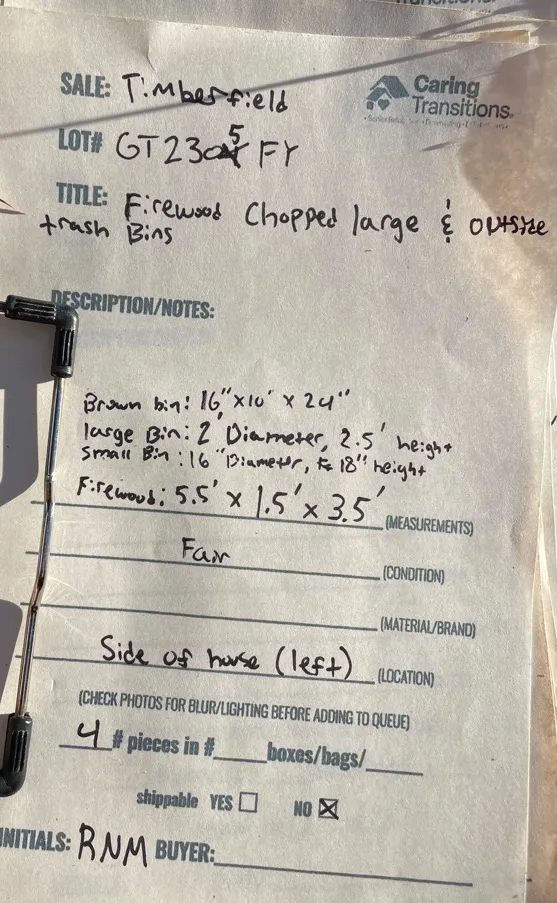 SALE: Timberfield
Caring
Transitions®
LOT# GT2305 FY
TITLE: Firewood Chopped large & outside
trash Bins
DESCRIPTION/NOTES:
Brown bin: 16" x 10' x 24"
large Bin: 2' Diameter, 2.5' height
Small Bin: 16" Diameter, 18" height
Firewood: 5.5' x 1.5' x 3.5' (MEASUREMENTS)
Fair (CONDITION)
(MATERIAL/BRAND)
Side of house (left) (LOCATION)
(CHECK PHOTOS FOR BLUR/LIGHTING BEFORE ADDING TO QUEUE)
4 # pieces in # boxes/bags/
shippable YES ☐ NO ☒
INITIALS: RNM BUYER: